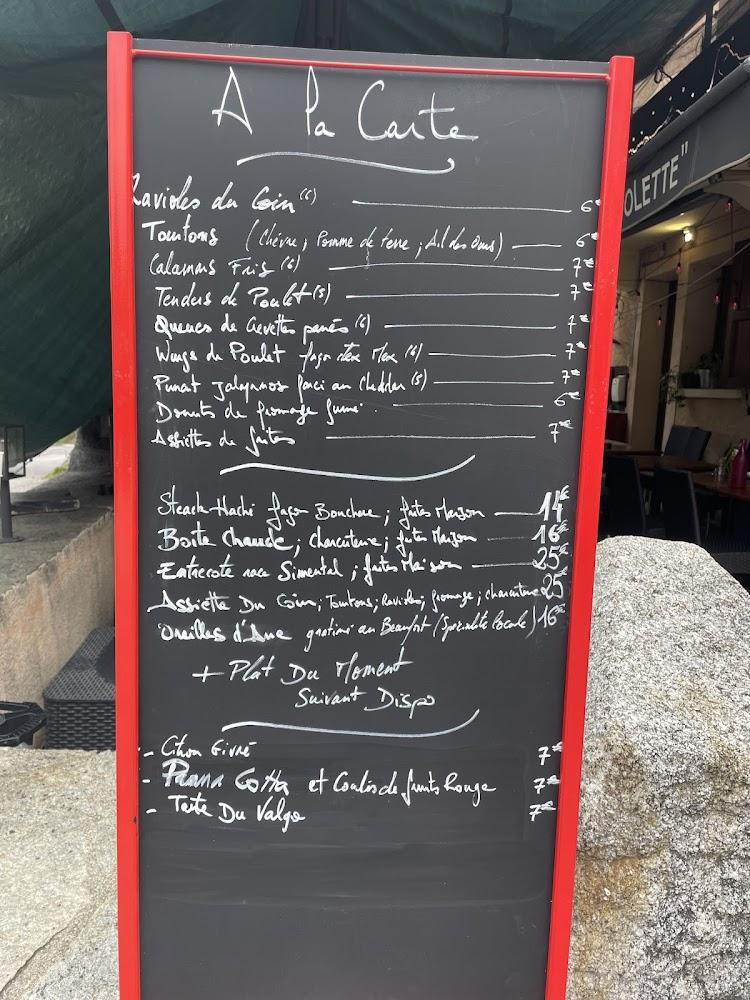 A la Carte
Ravioles du Coin (6) 6€
Tourtons (Chèvre ; Pomme de terre ; Ail des Ours) 6€
Calamars Fris (6) 7€
Tenders de Poulet (5) 7€
Queues de Crevettes panées (6) 7€
Wings de Poulet façon tex Mex (6) 7€
Piment jalapenos farci au Cheddar (5) 7€
Donuts de fromage fumé 6€
Assiettes de frites 7€
Steack-Haché façon Bouchere ; frites Maison 14€
Boite Chaude ; charcuterie ; frites Maison 16€
Entrecote race Simental ; frites Maison 25€
Assiette Du Coin ; Tourtons ; Ravioles ; fromage ; charcuterie 25€
Oreilles d'Ane gratiné au Beaufort (Spécialité locale) 16€
+ Plat Du Moment
Suivant Dispo
- Citron Givré 7€
- Panna Cotta et Coulis de fruits Rouge 7€
- Tarte Du Valgo 7€
OLETTE"